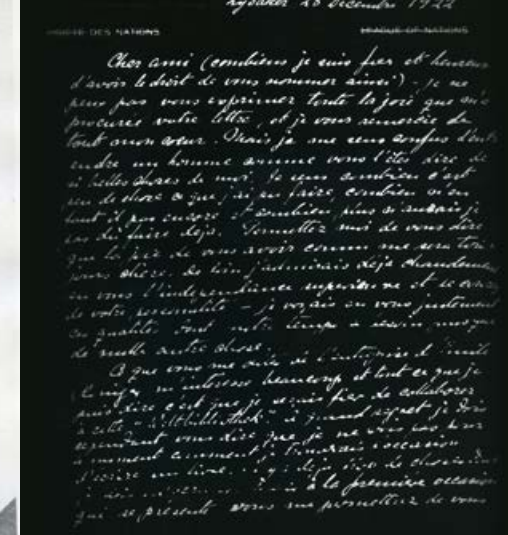 Lysaker 28 décembre 1922
DES NATIONS LEAGUE OF NATIONS
Cher ami (combien je suis fier et heureux
d'avoir le droit de vous nommer ainsi). Je ne
peux pas vous exprimer toute la joie que m'a
procurée votre lettre, et je vous remercie de
tout mon coeur. Mais je me sens confus d'ent-
endre un homme comme vous l'êtes dire de
si belles choses de moi. Je sens combien c'est
peu de chose ce que j'ai pu faire, combien
il pas encore, et combien plus n'aurais je
pas dû faire déjà. Permettez moi de vous dire
que la joie de vous avoir connu me sera tou-
jours chère. De loin j'admirais déjà chaudement
en vous l'indépendance supérieure et
de votre personnalité – je voyais en vous justement
qualités dont notre temps a besoin plus que
de nulle autre chose.
Ce que vous me dites de l'entreprise d'Emile
m'intéresse beaucoup et tout ce que je
puis dire c'est que je serais fier de collaborer
à cette "Weltbibliothek" à quand
cependant vous dire que je ne vois pas
comment je trouverais l'occasion
d'écrire un livre. déjà
à la première occasion
qui se présente vous me promettrez de vous